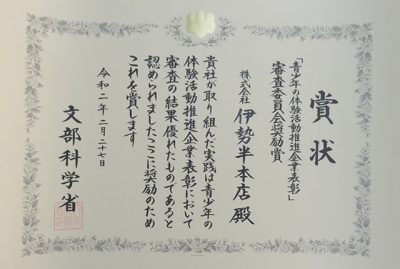 賞状
「青少年の体験活動推進企業表彰」
審査委員会奨励賞
株式会社 伊勢半本店 殿
貴社が取り組んだ実践は青少年の
体験活動推進企業表彰において
審査の結果優れたものであると
認められましたここに奨励のため
これを賞します
令和二年二月二十七日
文部科学省